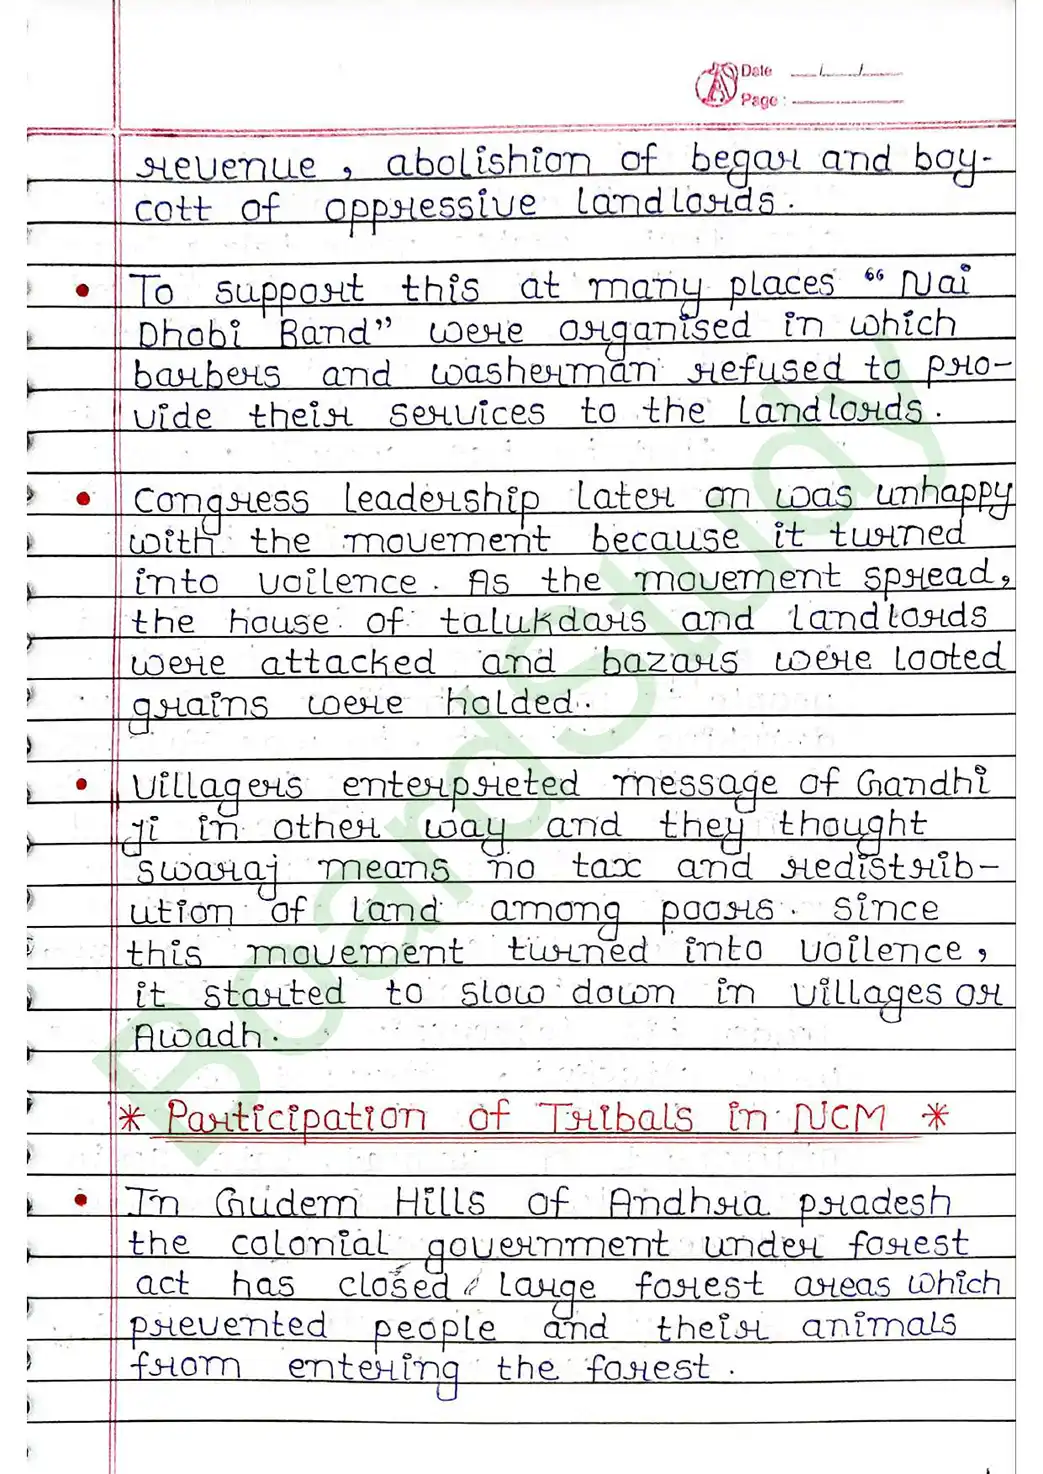 Date
Page :
revenue, abolishion of begar and boy-
cott of oppressive landlords.
• To support this at many places “Nai
Dhobi Band” were organised in which
barbers and washerman refused to pro-
vide their services to the landlords.
• Congress leadership later on was unhappy
with the movement because it turned
into voilence. As the movement spread,
the house of talukdars and landlords
were attacked and bazars were looted
grains were holded.
• Villagers enterpreted message of Gandhi
ji in other way and they thought
swaraj means no tax and redistrib-
ution of land among poors. Since
this movement turned into voilence,
it started to slow down in villages or
Awadh.
* Participation of Tribals in NCM *
• In Gudem Hills of Andhra pradesh
the colonial government under forest
act has closed large forest areas which
prevented people and their animals
from entering the forest.
BoardStudy